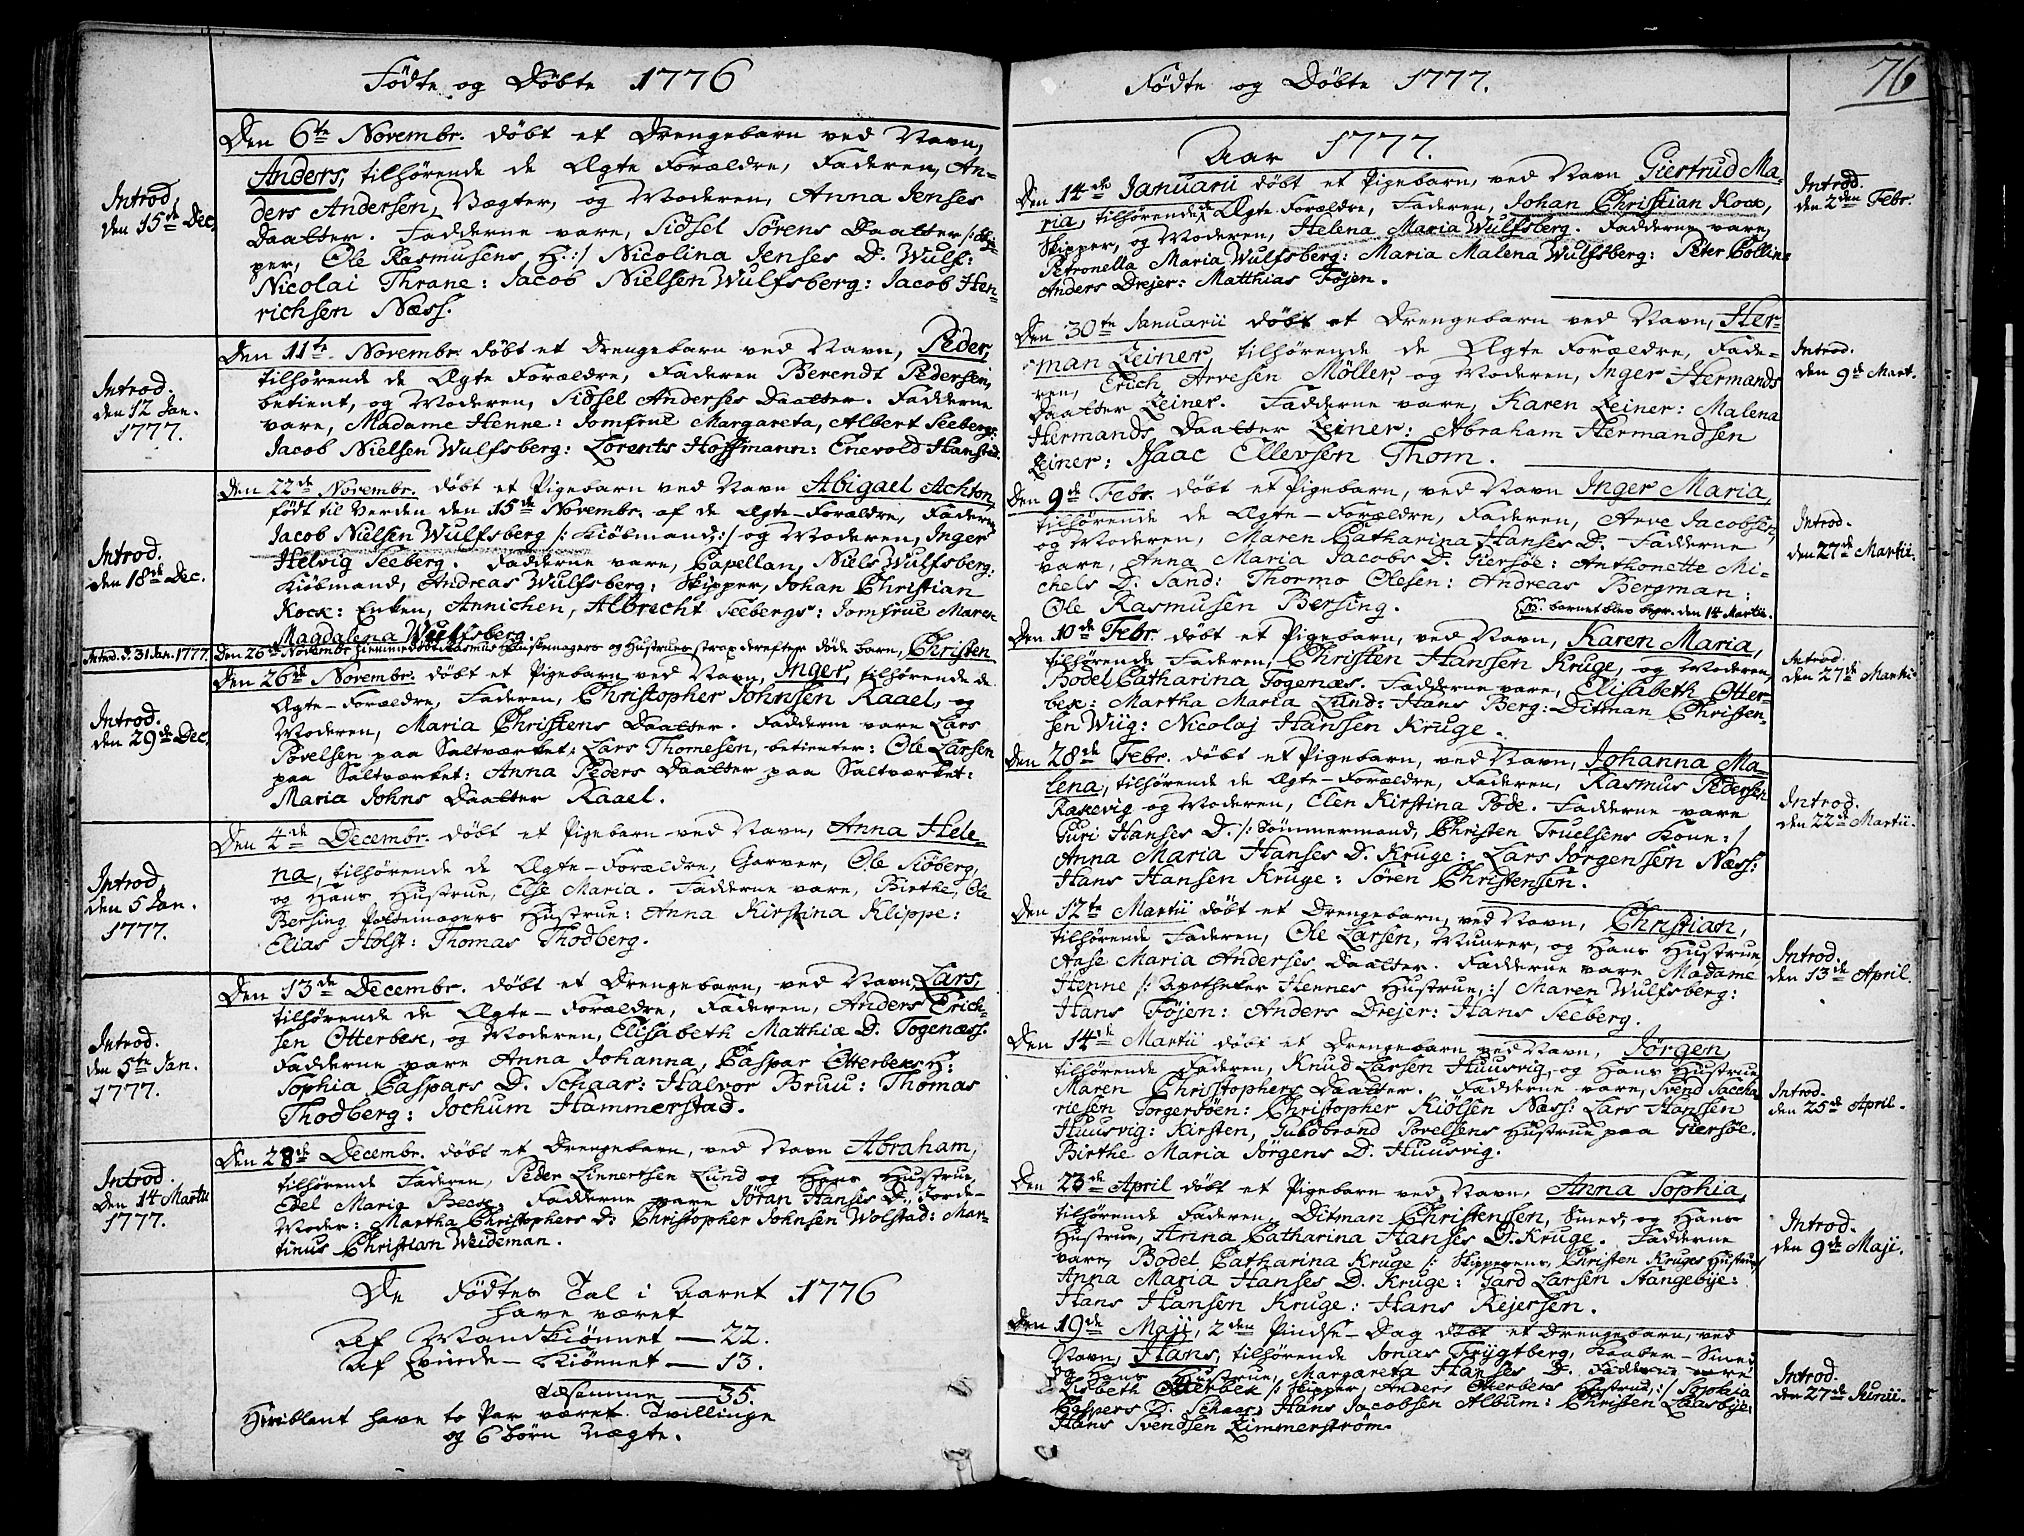 Fødte og Døbte 1776
Den 6te Novembr. døbt et Drengebarn ved Navn,
Anders, tilhørende de Ægte Forældre, Faderen, An-
ders Andersen, Vægter, og Moderen, Anna Jenses
Daatter. Fadderne vare, Sidsel Sørens Daatter /: Skip-
per, Ole Rasmusens H: :/ Nicolina Jenses D. Wulf:
Nicolai Thrane: Jacob Nielsen Wulfsberg: Jacob Hen-
richsen Næss.
Introd.
den 15de Dec.
Den 11te Novembr. døbt et Drengebarn ved Navn, Peder,
tilhørende de Ægte Forældre, Faderen Berendt Pedersen,
betient, og Moderen, Sidsel Anderses Daatter. Fadderne
vare, Madame Henne: Jomfrue Margareta, Albert Seebergs:
Jacob Nielsen Wulfsberg: Lorents Hoffmann: Enevold Hansted.
Introd.
den 12 Jan.
1777.
Den 22de Novembr. døbt et Pigebarn ved Navn Abigael Achton,
født til Verden den 15de Novembr. af de Ægte-Forældre, Faderen
Jacob Nielsen Wulfsberg /: Kiøbmand, :/ og Moderen, Inger
Helvig Seeberg. Fadderne vare, Capellan, Niels Wulfsberg:
Kiøbmand, Andreas Wulfsberg: Skipper, Johan Christian
Kock: Enken, Annichen, Albrecht Seebergs: Jomfrue Maren
Magdalena Wulfsberg.
Introd.
den 18de Dec.
Introd. d. 31 Jan. 1777.
Den 26de Novembr hiemmedøbt Rasmus Hanskemagers og Hustrues strax derefter døde barn, Christen
Den 26de Novembr. døbt et Pigebarn ved Navn, Inger, tilhørende de
Ægte-Forældre, Faderen, Christopher Johnsen Raael, og
Moderen, Maria Christens Daatter. Fadderne vare Lars
Povelsen paa Saltværket: Lars Thomesen, betienter: Ole Larsen
paa Saltværket: Anna Peders Daatter paa Saltværket:
Maria Johns Daatter Raael.
Introd.
den 29de Dec.
Den 4de Decembr. døbt et Pigebarn ved Navn, Anna Hele-
na, tilhørende de Ægte-Forældre, Garver, Ole Siøberg,
og Hans Hustrue, Else Maria. Fadderne vare, Birthe, Ole
Bersing Pottemagers Hustrue: Anna Kirstina Klippe:
Elias Holst: Thomas Thodberg.
Introd.
den 5 Jan.
1777.
Den 13de Decembr. døbt et Drengebarn, ved Navn, Lars,
tilhørende de Ægte-Forældre, Faderen, Anders Erich-
sen Otterbek, og Moderen, Elisabeth Matthiæ D. Togenæss.
Fadderne vare Anna Johanna, Caspar Otterbeks H:
Sophia Caspars D. Schaar: Halvor Bruu: Thomas
Thodberg: Jochum Hammerstad.
Introd.
den 5te Jan.
1777.
Den 28de Decembr. døbt et Drengebarn, ved Navn Abraham,
tilhørende Faderen, Peder Linnertsen Lund og Hans Hustrue,
Edel Maria Beck. Fadderne vare Jöran Hanses D., Jorde-
Moder: Martha Christophers D: Christopher Johnsen Wolstad: Mar-
tinus Christian Weideman.
Introd.
den 14 Martii
1777.
De Fødtes Tal i Aaret 1776
have været
Af Mandkiønnet — 22.
Af Qvinde-Kiønnet — 13.
tilsamme — 35.
Hvriblant have to Par været Tvillinge
og 6 børn uægte.
Fødte og Døbte 1777.
76
Aar 1777.
Den 14de Januarii døbt et Pigebarn, ved Navn Giertrud Ma-
ria, tilhørende de Ægte-Forældre, Faderen, Johan Christian Kock,
Skipper, og Moderen, Helena Maria Wulfsberg. Fadderne vare,
Petronella Maria Wulfsberg: Maria Malena Wulfsberg: Peter Collin:
Anders Drejer: Matthias Føjen.
Introd.
den 2den Febr.
Den 30te Januarii døbt et Drengebarn ved Navn, Her-
man Leiner, tilhørende de Ægte Forældre, Fade-
ren, Erich Arvesen Möller, og Moderen, Inger Hermands
Daatter Leiner. Fadderne vare, Karen Leiner: Malena
Hermands Daatter Leiner: Abraham Hermandsen
Leiner: Isaac Ellevsen Thom.
Introd.
den 9de Mart.
Den 9de Febr. døbt et Pigebarn, ved Navn Inger Maria,
tilhørende de Ægte-Forældre, Faderen, Arve Jacobsen,
og Moderen, Maren Catharina Hanses D. Fadderne
vare, Anna Maria Jacobs D. Giersøe: Anthonette Mi-
chels D. Sand: Thormo Olesen: Andreas Bergman:
Ole Rasmusen Bersing. NB. barnet blev begr. den 14 Martii.
Introd.
den 27de Martii.
Den 10de Febr. døbt et Pigebarn, ved Navn, Karen Maria,
tilhørende Faderen, Christen Hanssen Kruge, og Moderen,
Bodel Catharina Togenæs. Fadderne vare, Elisabeth Otter-
bek: Martha Maria Lund: Hans Berg: Ditman Christen-
sen Wiig: Nicolaj Hansen Kruge.
Introd.
den 27de Martii.
Den 28de Febr. døbt et Pigebarn, ved Navn, Johanna Ma-
lena, tilhørende de Ægte-Forældre, Faderen, Rasmus Pedersen
Rakevig og Moderen, Elen Kirstina Bode. Fadderne vare
Guri Hanses D. /: Tømmermand, Christen Truelsens Kone :/
Anna Maria Hanses D. Kruge: Lars Jørgenssen Næss:
Hans Hansen Kruge: Søren Christensen.
Introd.
den 22de Martii.
Den 12te Martii døbt et Drengebarn, ved Navn, Christian,
tilhørende Faderen, Ole Larsen, Muurer, og Hans Hustrue
Aase Maria Anderses Daatter. Fadderne vare Madame
Henne /: Apotheker Hennes Hustrue, :/ Maren Wulfsberg:
Hans Føjen: Anders Drejer: Hans Seeberg.
Introd.
den 13de April.
Den 14de Martii døbt et Drengebarn ved Navn, Jørgen,
tilhørende Faderen, Knud Larsen Huusvig, og Hans Hustrue
Maren Christophers Daatter. Fadderne vare, Svend Saccha-
riesen Torgersøen: Christopher Kiølsen Næss: Lars Hanssen
Huusvig: Kirsten, Guldbrand Povelsens Hustrue paa Giersøe.
Birthe Maria Jörgens D. Huusvig.
Introd.
den 25de April.
Den 23de April døbt et Pigebarn ved Navn, Anna Sophia,
tilhørende Faderen, Ditman Christenssen, Smed, og Hans
Hustrue, Anna Catharina Hanses D. Kruge. Fadderne
vare, Bodel Catharina Kruge /: Skipperens, Christen Kruges Hustrue,
Anna Maria Hanses D. Kruge: Gard Larsen Stangebÿe:
Hans Hansen Kruge: Hans Rejersen.
Introd.
den 9de Maji.
Den 19de Maji, 2den Pindse-Dag døbt et Drengebarn, ved
Navn, Hans, tilhørende Jonas Frygtberg, Kaaber-Smed
og Hans Hustrue, Margareta Hanses D. Fadderne vare
Lisbeth Otterbek /: Skipper, Anders Otterbeks Hustrue, :/ Sophia
Caspers D. Schaar: Hans Jacobsen Album: Christen Laasbÿe:
Hans Svendsen Zimmerstrøm.
Introd.
den 27de Junii.